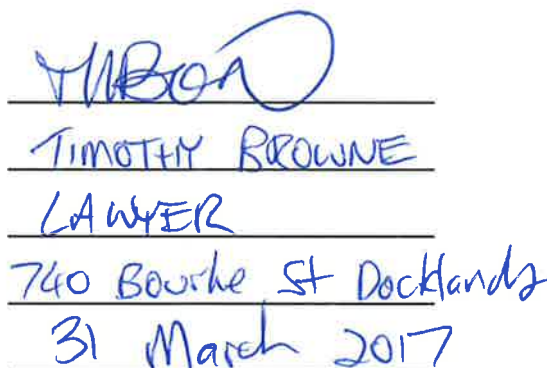 TIMOTHY BROWNE
LAWYER
740 Bourke St Docklands
31 March 2017